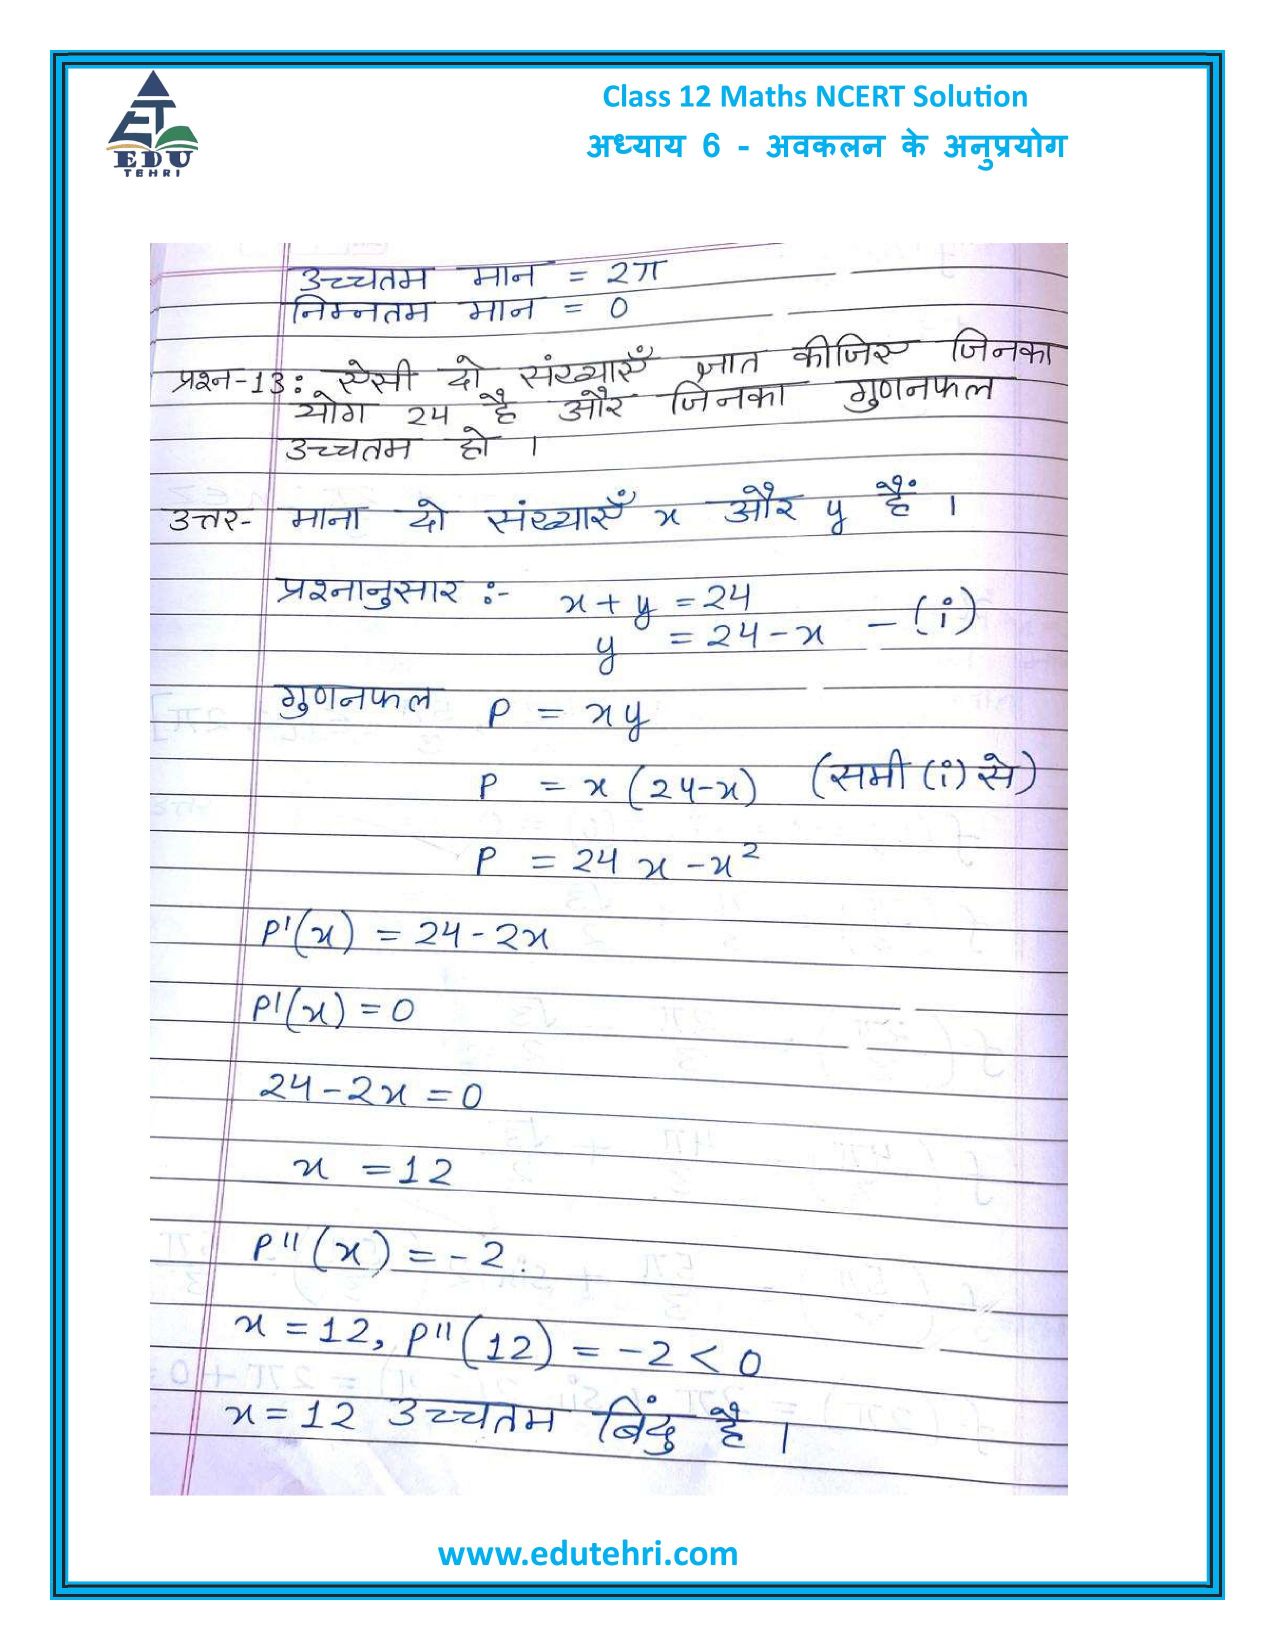 ET
EDU
TEHRI
Class 12 Maths NCERT Solution
अध्याय 6 - अवकलन के अनुप्रयोग
उच्चतम मान = 2π
निम्नतम मान = 0
प्रश्न-13: ऐसी दो संख्याएँ ज्ञात कीजिए जिनका
योग 24 है और जिनका गुणनफल
उच्चतम हो ।
उत्तर- माना दो संख्याएँ x और y हैं ।
प्रश्नानुसार :- x + y = 24
y = 24 - x - (i)
गुणनफल P = xy
P = x (24-x) (समी (i) से)
P = 24 x - x²
P'(x) = 24 - 2x
P'(x) = 0
24 - 2x = 0
x = 12
P''(x) = - 2
x = 12, P''(12) = -2 < 0
x = 12 उच्चतम बिंदु है ।
www.edutehri.com